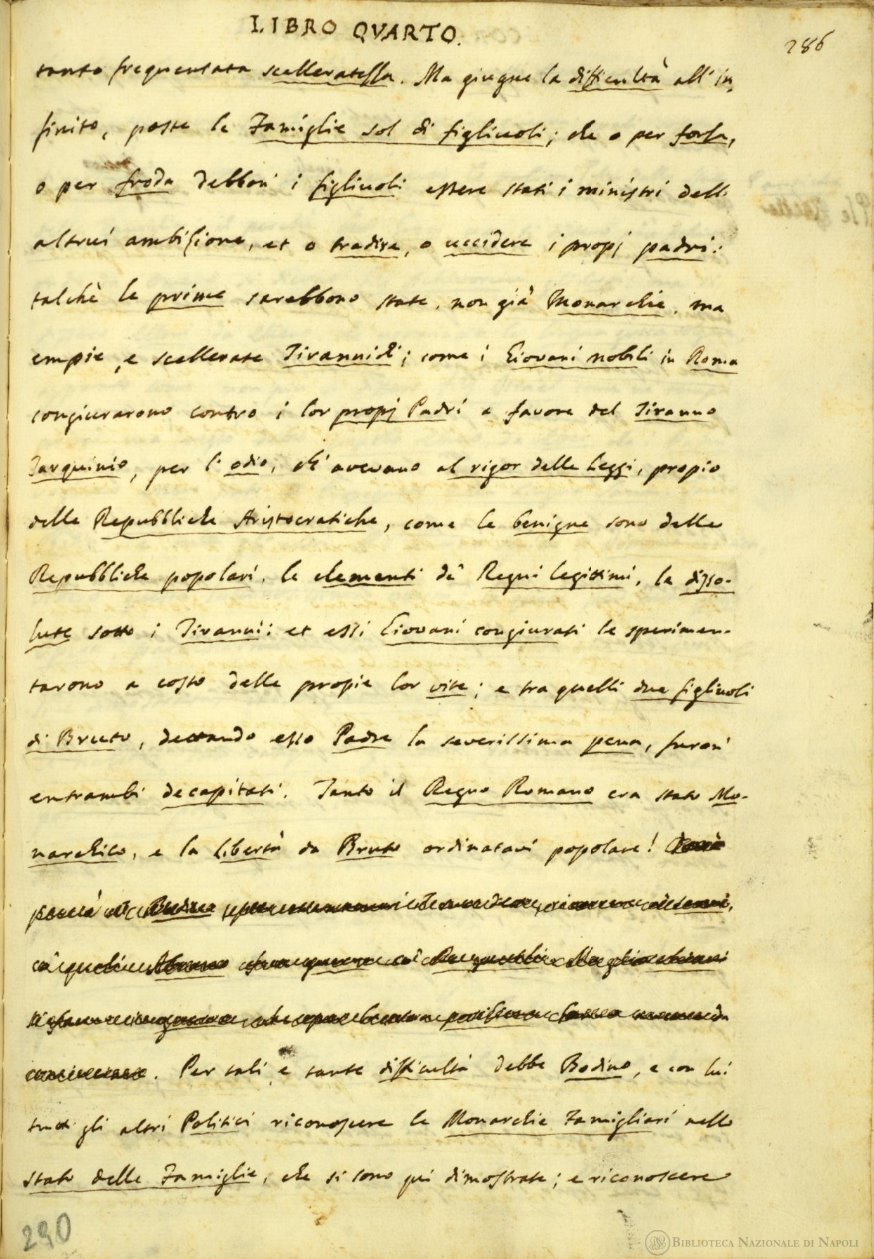 LIBRO QVARTO.
286
tanto frequentata scelleratezza. Ma giugne la difficultà all'in-
finito, poste le Famiglie sol di figliuoli; che o per forza,
o per froda debbon' i figliuoli essere stati i ministri dell'
altrui ambizione, et o tradire, o uccidere i propj padri:
talchè le prime sarebbono state, non già Monarchie, ma
empie, e scellerate Tirannidi; come i Giovani nobili in Roma
congiurarono contro i lor propj Padri a favore del Tiranno
Tarquinio, per l'odio, ch'avevano al rigor delle Leggi, propio
delle Repubbliche Aristocratiche, come le benigne sono delle
Repubbliche popolari, le clementi de' Regni legittimi, le disso-
lute sotto i Tiranni: et essi Giovani congiurati le sperimen-
tarono a costo delle propie lor vite; e tra quelli due figliuoli
di Bruto, dettando esso Padre la severissima pena, furon'
entrambi decapitati. Tanto il Regno Romano era stato Mo-
narchico, e la libertà da Bruto ordinatavi popolare!
. Per tali, e tante difficultà debbe Bodino, e con lui
tutti gli altri Politici riconoscere le Monarchie Famigliari nello
Stato delle Famiglie, che si sono qui dimostrate; e riconoscere
290
BIBLIOTECA NAZIONALE DI NAPOLI